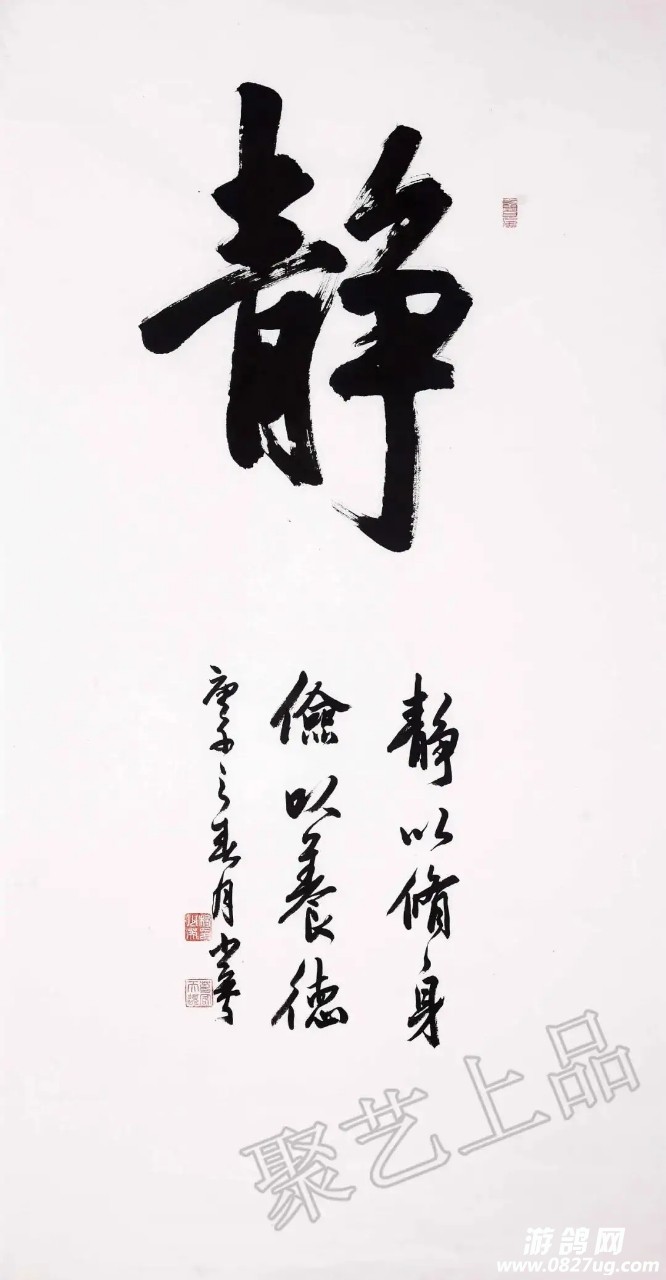 静
静以脩身
儉以養德
庚子之春月
聚艺上品
游鸽网
www.0827ug.com